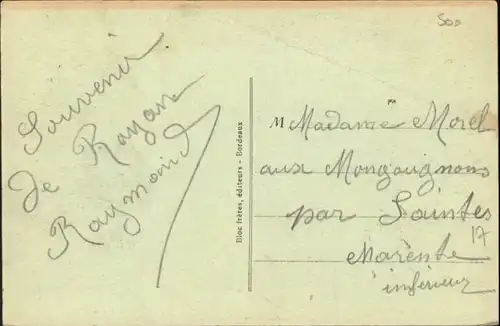 500
Souvenir
de Royan
Raymond
Bloc frères, éditeurs - Bordeaux
M Madame Morel
aux Mongauignons
par Saintes
17
Charente
inférieur